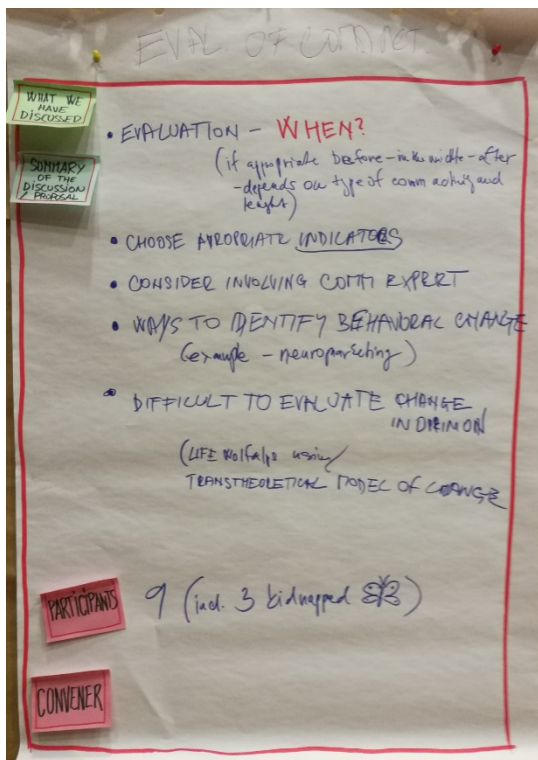 EVAL OF COMM ACT.
WHAT WE
HAVE
DISCUSSED
• EVALUATION - WHEN?
(if appropriate before - in the middle - after
- depends on type of comm activity and
lenght)
SUMMARY
OF THE
DISCUSSION
/PROPOSAL
• CHOOSE APROPRIATE INDICATORS
• CONSIDER INVOLVING COMM EXPERT
• WAYS TO IDENTIFY BEHAVIORAL CHANGE
(example - neuromarketing)
• DIFFICULT TO EVALUATE CHANGE
IN OPINION
(LIFE Wolfalps using
TRANSTHEORETICAL MODEL OF CHANGE
PARTICIPANTS
9 (incl. 3 kidnapped )
CONVENER